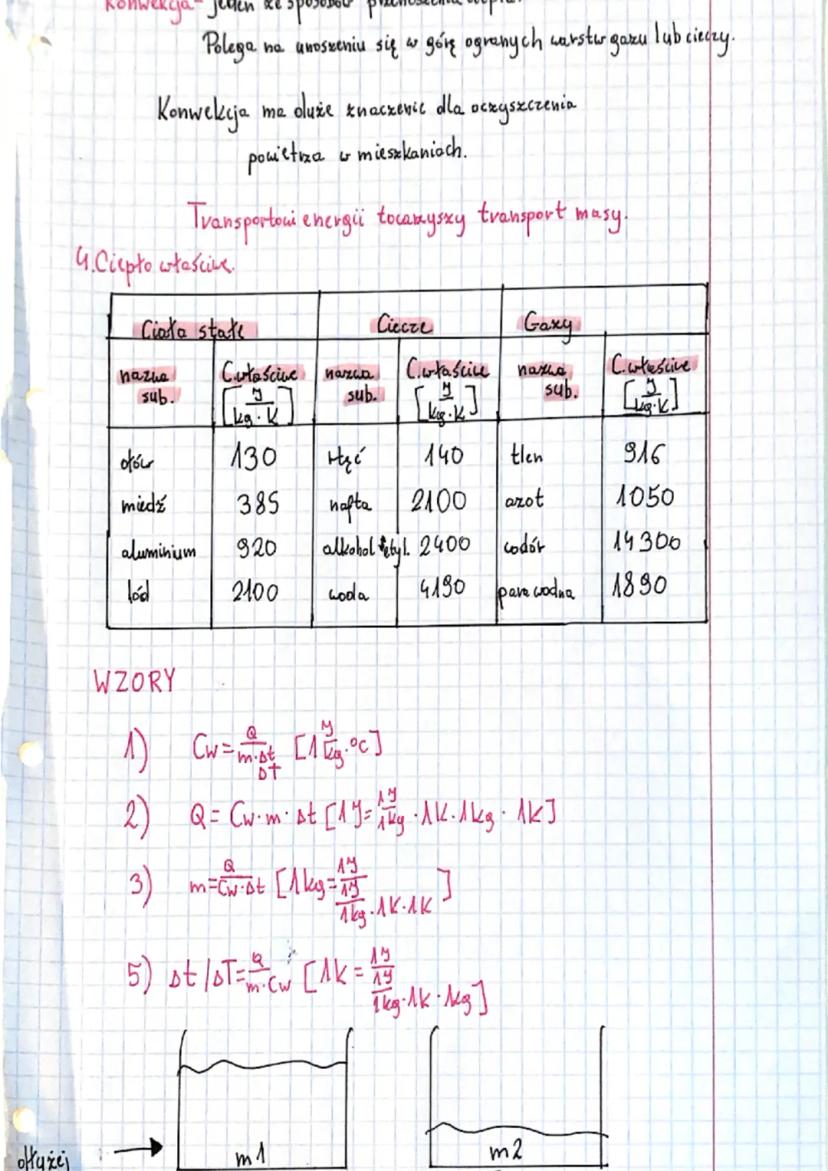 Konwekcja- jeden ze sposobów przenoszenia ciepła.
Polega na unoszeniu się w górę ogranych warstw gazu lub cieczy.
Konwekcja ma duże znaczenie dla oczyszczenia
powietrza w mieszkaniach.
Transportowi energii towarzyszy transport masy.
4. Ciepło właściwe.
Ciała stałe Ciecze Gazy
nazwa sub. C.właściwe [J/kg·K] nazwa sub. C.właściwe [J/kg·K] nazwa sub. C.właściwe [J/kg·K]
ołów 130 rtęć 140 tlen 916
miedź 385 nafta 2100 azot 1050
aluminium 920 alkohol etyl. 2400 wodór 14300
lód 2100 woda 4190 para wodna 1890
WZORY
1) Cw = Q/m·Δt ΔT [1 J/kg·°C]
2) Q = Cw·m·Δt [1J = 1J/1kg·1K·1kg·1K]
3) m = Q/Cw·Δt [1kg = 1J/1J/1kg·1K·1K]
5) Δt/ΔT = Q/m·Cw [1K = 1J/1J/1kg·1K·1kg]
dłużej m1 m2